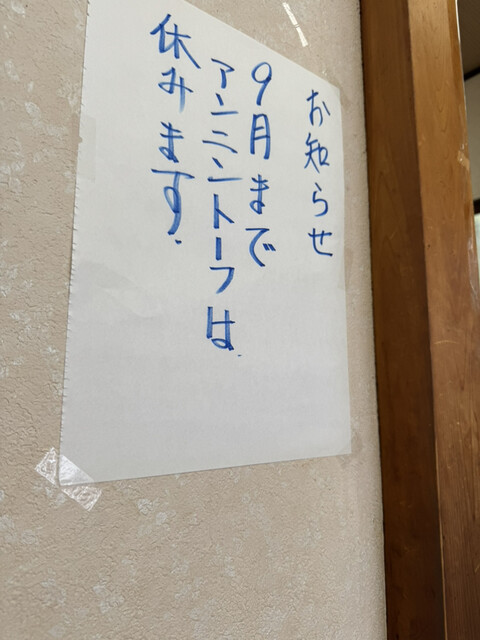 お知らせ
9月まで
アンニントーフは
休みます.